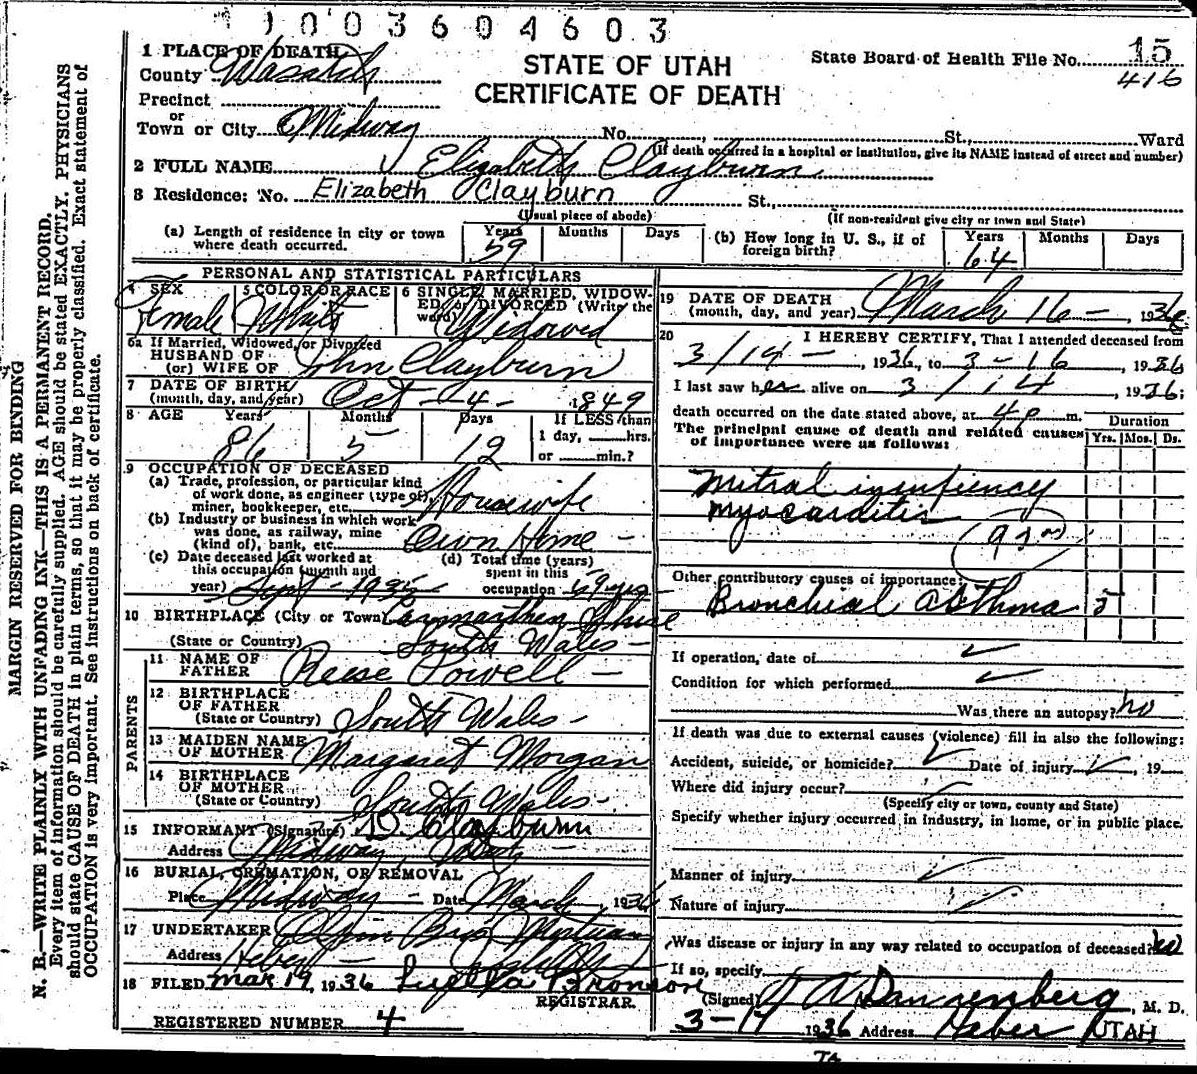 1003604603
1 PLACE OF DEATH
County Wasatch
STATE OF UTAH
CERTIFICATE OF DEATH
State Board of Health File No. 15
416
Precinct
or
Town or City Midway No. St., Ward
(If death occurred in a hospital or institution, give its NAME instead of street and number)
2 FULL NAME Elizabeth Clayburn
3 Residence: No. Elizabeth Clayburn St.,
(Usual place of abode) (If non-resident give city or town and State)
(a) Length of residence in city or town where death occurred. Years 59 Months Days
(b) How long in U. S., if of foreign birth? Years 64 Months Days
PERSONAL AND STATISTICAL PARTICULARS
4 SEX 5 COLOR OR RACE 6 SINGLE, MARRIED, WIDOWED, or DIVORCED (Write the word)
Female White Widowed
6a If Married, Widowed, or Divorced
HUSBAND OF
(or) WIFE OF John Clayburn
7 DATE OF BIRTH
(month, day, and year) Oct - 4 - 1849
8 AGE Years Months Days If LESS than
86 5 12 1 day, hrs.
or min.?
9 OCCUPATION OF DECEASED
(a) Trade, profession, or particular kind
of work done, as engineer (type of),
miner, bookkeeper, etc. Housewife
(b) Industry or business in which work
was done, as railway, mine
(kind of), bank, etc. Own Home -
(c) Date deceased last worked at
this occupation (month and
year) Sept - 1935
(d) Total time (years)
spent in this
occupation 69 yrs -
10 BIRTHPLACE (City or Town) Carmarthen Shire
(State or Country) South Wales -
PARENTS
11 NAME OF
FATHER Reese Powell -
12 BIRTHPLACE
OF FATHER
(State or Country) South Wales -
13 MAIDEN NAME
OF MOTHER Margaret Morgan
14 BIRTHPLACE
OF MOTHER
(State or Country) South Wales -
15 INFORMANT (Signature) D. Clayburn
Address Midway, Utah
16 BURIAL, CREMATION, OR REMOVAL
Place Midway - Date March, 1936
17 UNDERTAKER Olpin Bros
Address Heber -
18 FILED Mar 19, 1936 Luella Bronson
REGISTRAR.
REGISTERED NUMBER 4
19 DATE OF DEATH
(month, day, and year) March 16 -, 1936
20 I HEREBY CERTIFY, That I attended deceased from
3/14 -, 1936, to 3-16, 1936
I last saw her alive on 3/14, 1936;
death occurred on the date stated above, at 4p m.
The principal cause of death and related causes
of importance were as follows:
Duration
Yrs. Mos. Ds.
Mitral insufiency
Myocarditis
Other contributory causes of importance:
Bronchial asthma 5
If operation, date of
Condition for which performed
Was there an autopsy? No
If death was due to external causes (violence) fill in also the following:
Accident, suicide, or homicide? Date of injury, 19
Where did injury occur?
(Specify city or town, county and State)
Specify whether injury occurred in industry, in home, or in public place.
Manner of injury
Nature of injury
Was disease or injury in any way related to occupation of deceased? No
If so, specify
(Signed) Dannenberg, M. D.
3-17 1936 Address Heber UTAH
MARGIN RESERVED FOR BINDING
N. B.—WRITE PLAINLY WITH UNFADING INK—THIS IS A PERMANENT RECORD.
Every item of information should be carefully supplied. AGE should be stated EXACTLY. PHYSICIANS
should state CAUSE OF DEATH in plain terms, so that it may be properly classified. Exact statement of
OCCUPATION is very important. See instructions on back of certificate.